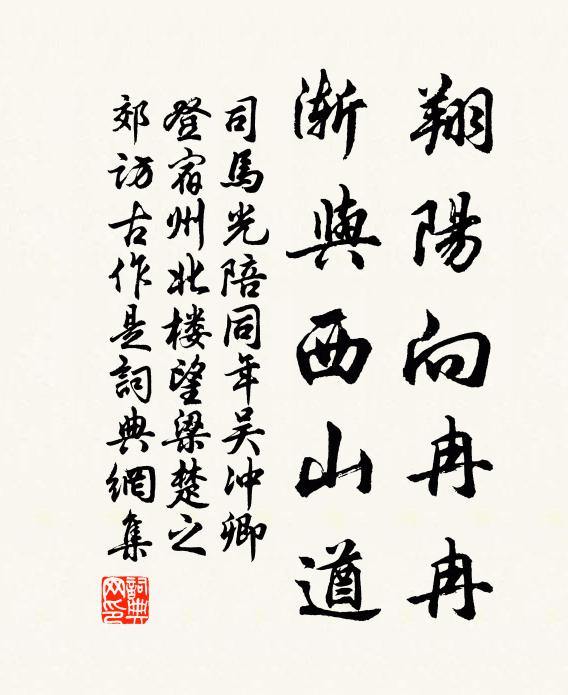 翔陽向冉冉
漸與西山遒
司馬光陪同年吴冲卿
登宿州北楼望梁楚之
郊訪古作是詞典網集
詞典網印